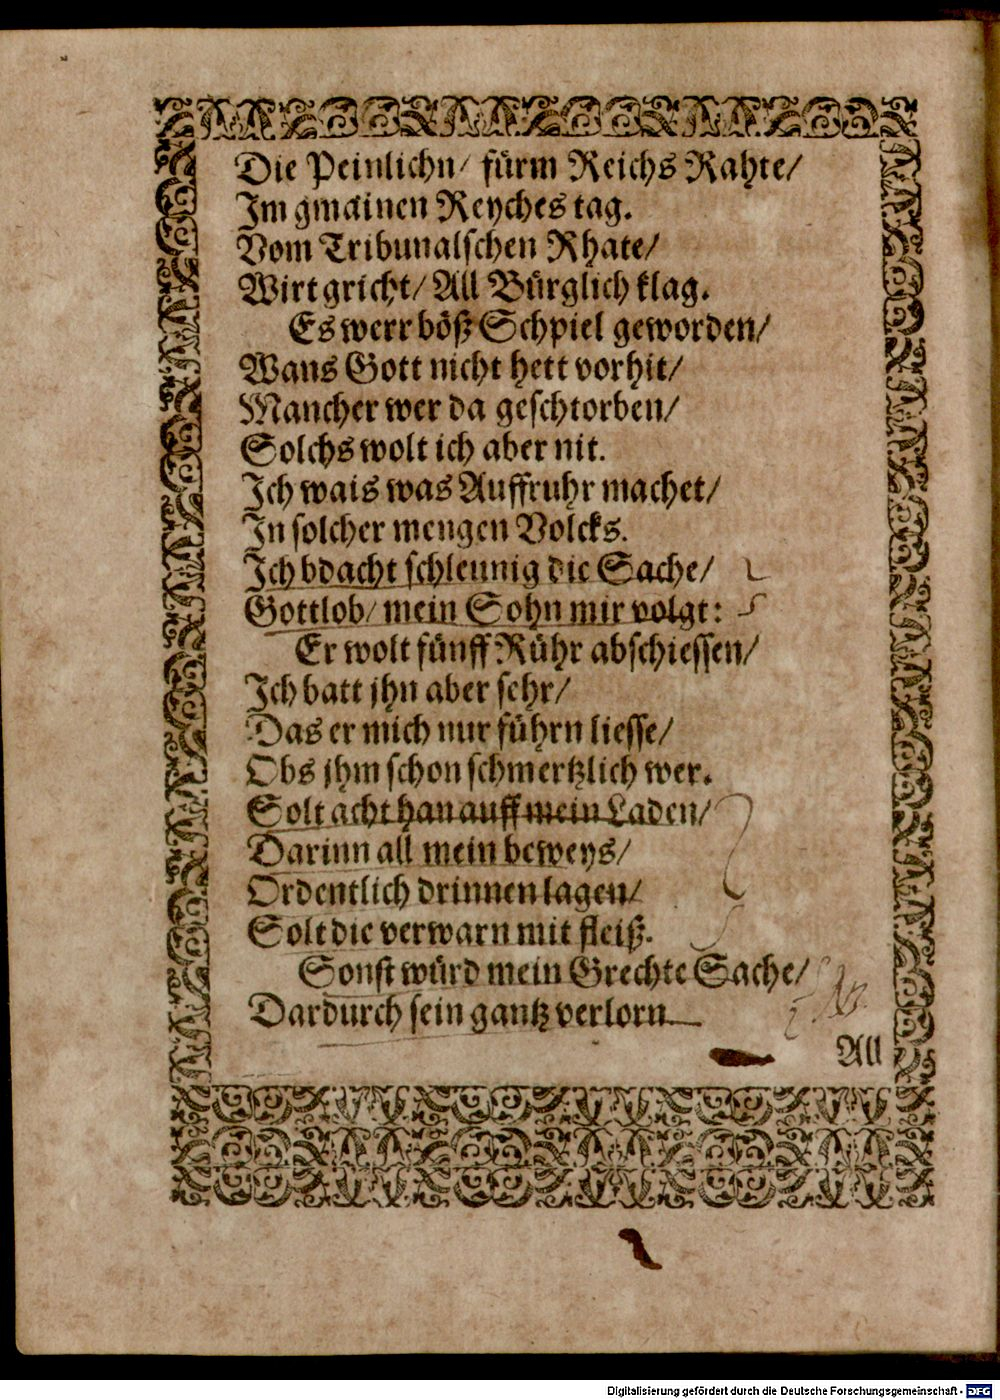 Die Peinlichn/ fürm Reichs Rahte/
Im gmainen Reyches tag.
Vom Tribunalschen Rhate/
Wirt gricht/ All Bürglich klag.
Es werr böß Schpiel geworden/
Wans Gott nicht hett vorhit/
Mancher wer da geschtorben/
Solchs wolt ich aber nit.
Ich wais was Auffruhr machet/
In solcher mengen Volcks.
Ich bdacht schleunig die Sache/
Gottlob/ mein Sohn mir volgt:
Er wolt fünff Rühr abschiessen/
Ich batt jhn aber sehr/
Das er mich nur führn liesse/
Obs jhm schon schmertzlich wer.
Solt acht han auff mein Laden/
Darinn all mein beweys/
Ordentlich drinnen lagen/
Solt die verwarn mit fleiß.
Sonst würd mein Grechte Sache/
Dardurch sein gantz verlorn
All
Digitalisierung gefördert durch die Deutsche Forschungsgemeinschaft - DFG